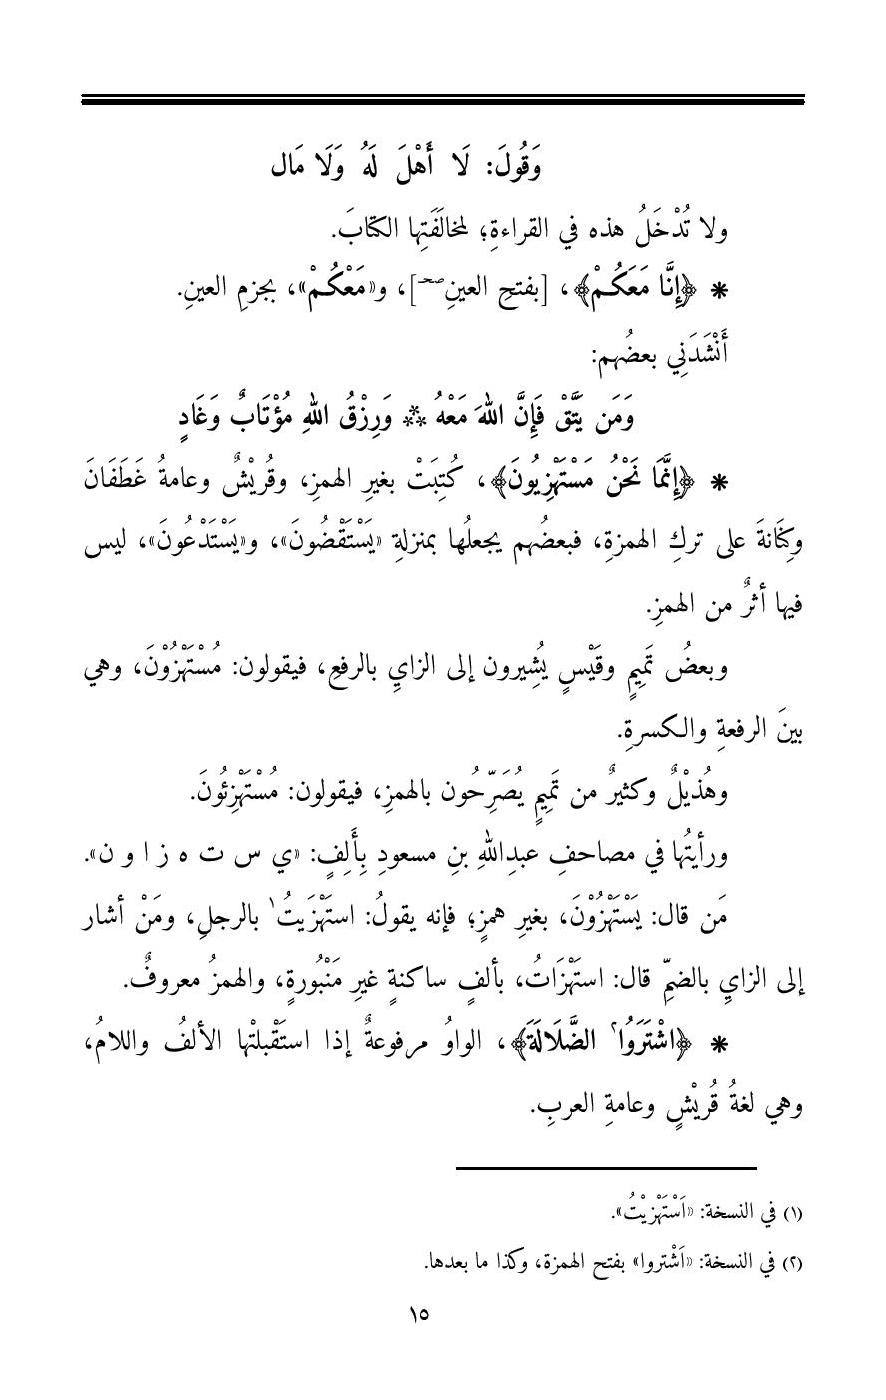 وَقُولَ: لَا أَهْلَ لَهُ وَلَا مَال
ولا تُدْخَلُ هذه في القراءةِ؛ لمخالَفَتِها الكتابَ.
* ﴿إِنَّا مَعَكُمْ﴾، [بفتحِ العينِ صحـ]، و«مَعْكُمْ»، بجزمِ العينِ.
أَنْشَدَنِي بعضُهم:
وَمَن يَتَّقْ فَإِنَّ اللهَ مَعْهُ ** وَرِزْقُ اللهِ مُؤْتَابٌ وَغَادِ
* ﴿إِنَّمَا نَحْنُ مَسْتَهْزِيُونَ﴾، كُتِبَتْ بغيرِ الهمزِ، وقُريْشٌ وعامةُ غَطَفَانَ
وكِنَانةَ على تركِ الهمزةِ، فبعضُهم يجعلُها بمنزلةِ «يَسْتَقْضُونَ»، و«يَسْتَدْعُونَ»، ليس
فيها أثرٌ من الهمزِ.
وبعضُ تَمِيمٍ وقَيْسٍ يُشِيرون إلى الزايِ بالرفعِ، فيقولون: مُسْتَهْزُوْنَ، وهي
بينَ الرفعةِ والكسرةِ.
وهُذيْلٌ وكثيرٌ من تَمِيمٍ يُصَرِّحُون بالهمزِ، فيقولون: مُسْتَهْزِئُونَ.
ورأيتُها في مصاحفِ عبدِاللهِ بنِ مسعودٍ بِأَلِفٍ: «ي س ت ه ز ا و ن».
مَن قال: يَسْتَهْزُوْنَ، بغيرِ همزٍ؛ فإنه يقولُ: استَهْزَيتُ١ بالرجلِ، ومَنْ أشار
إلى الزايِ بالضمِّ قال: استَهْزَاتُ، بألفٍ ساكنةٍ غيرِ مَنْبُورةٍ، والهمزُ معروفٌ.
* ﴿اشْتَرَوُا٢ الضَّلَالَةَ﴾، الواوُ مرفوعةٌ إذا استَقْبلتْها الألفُ واللامُ،
وهي لغةُ قُريْشٍ وعامةِ العربِ.
(١) في النسخة: «اَسْتَهْزيْتُ».
(٢) في النسخة: «اَشْتروا» بفتح الهمزة، وكذا ما بعدها.
١٥